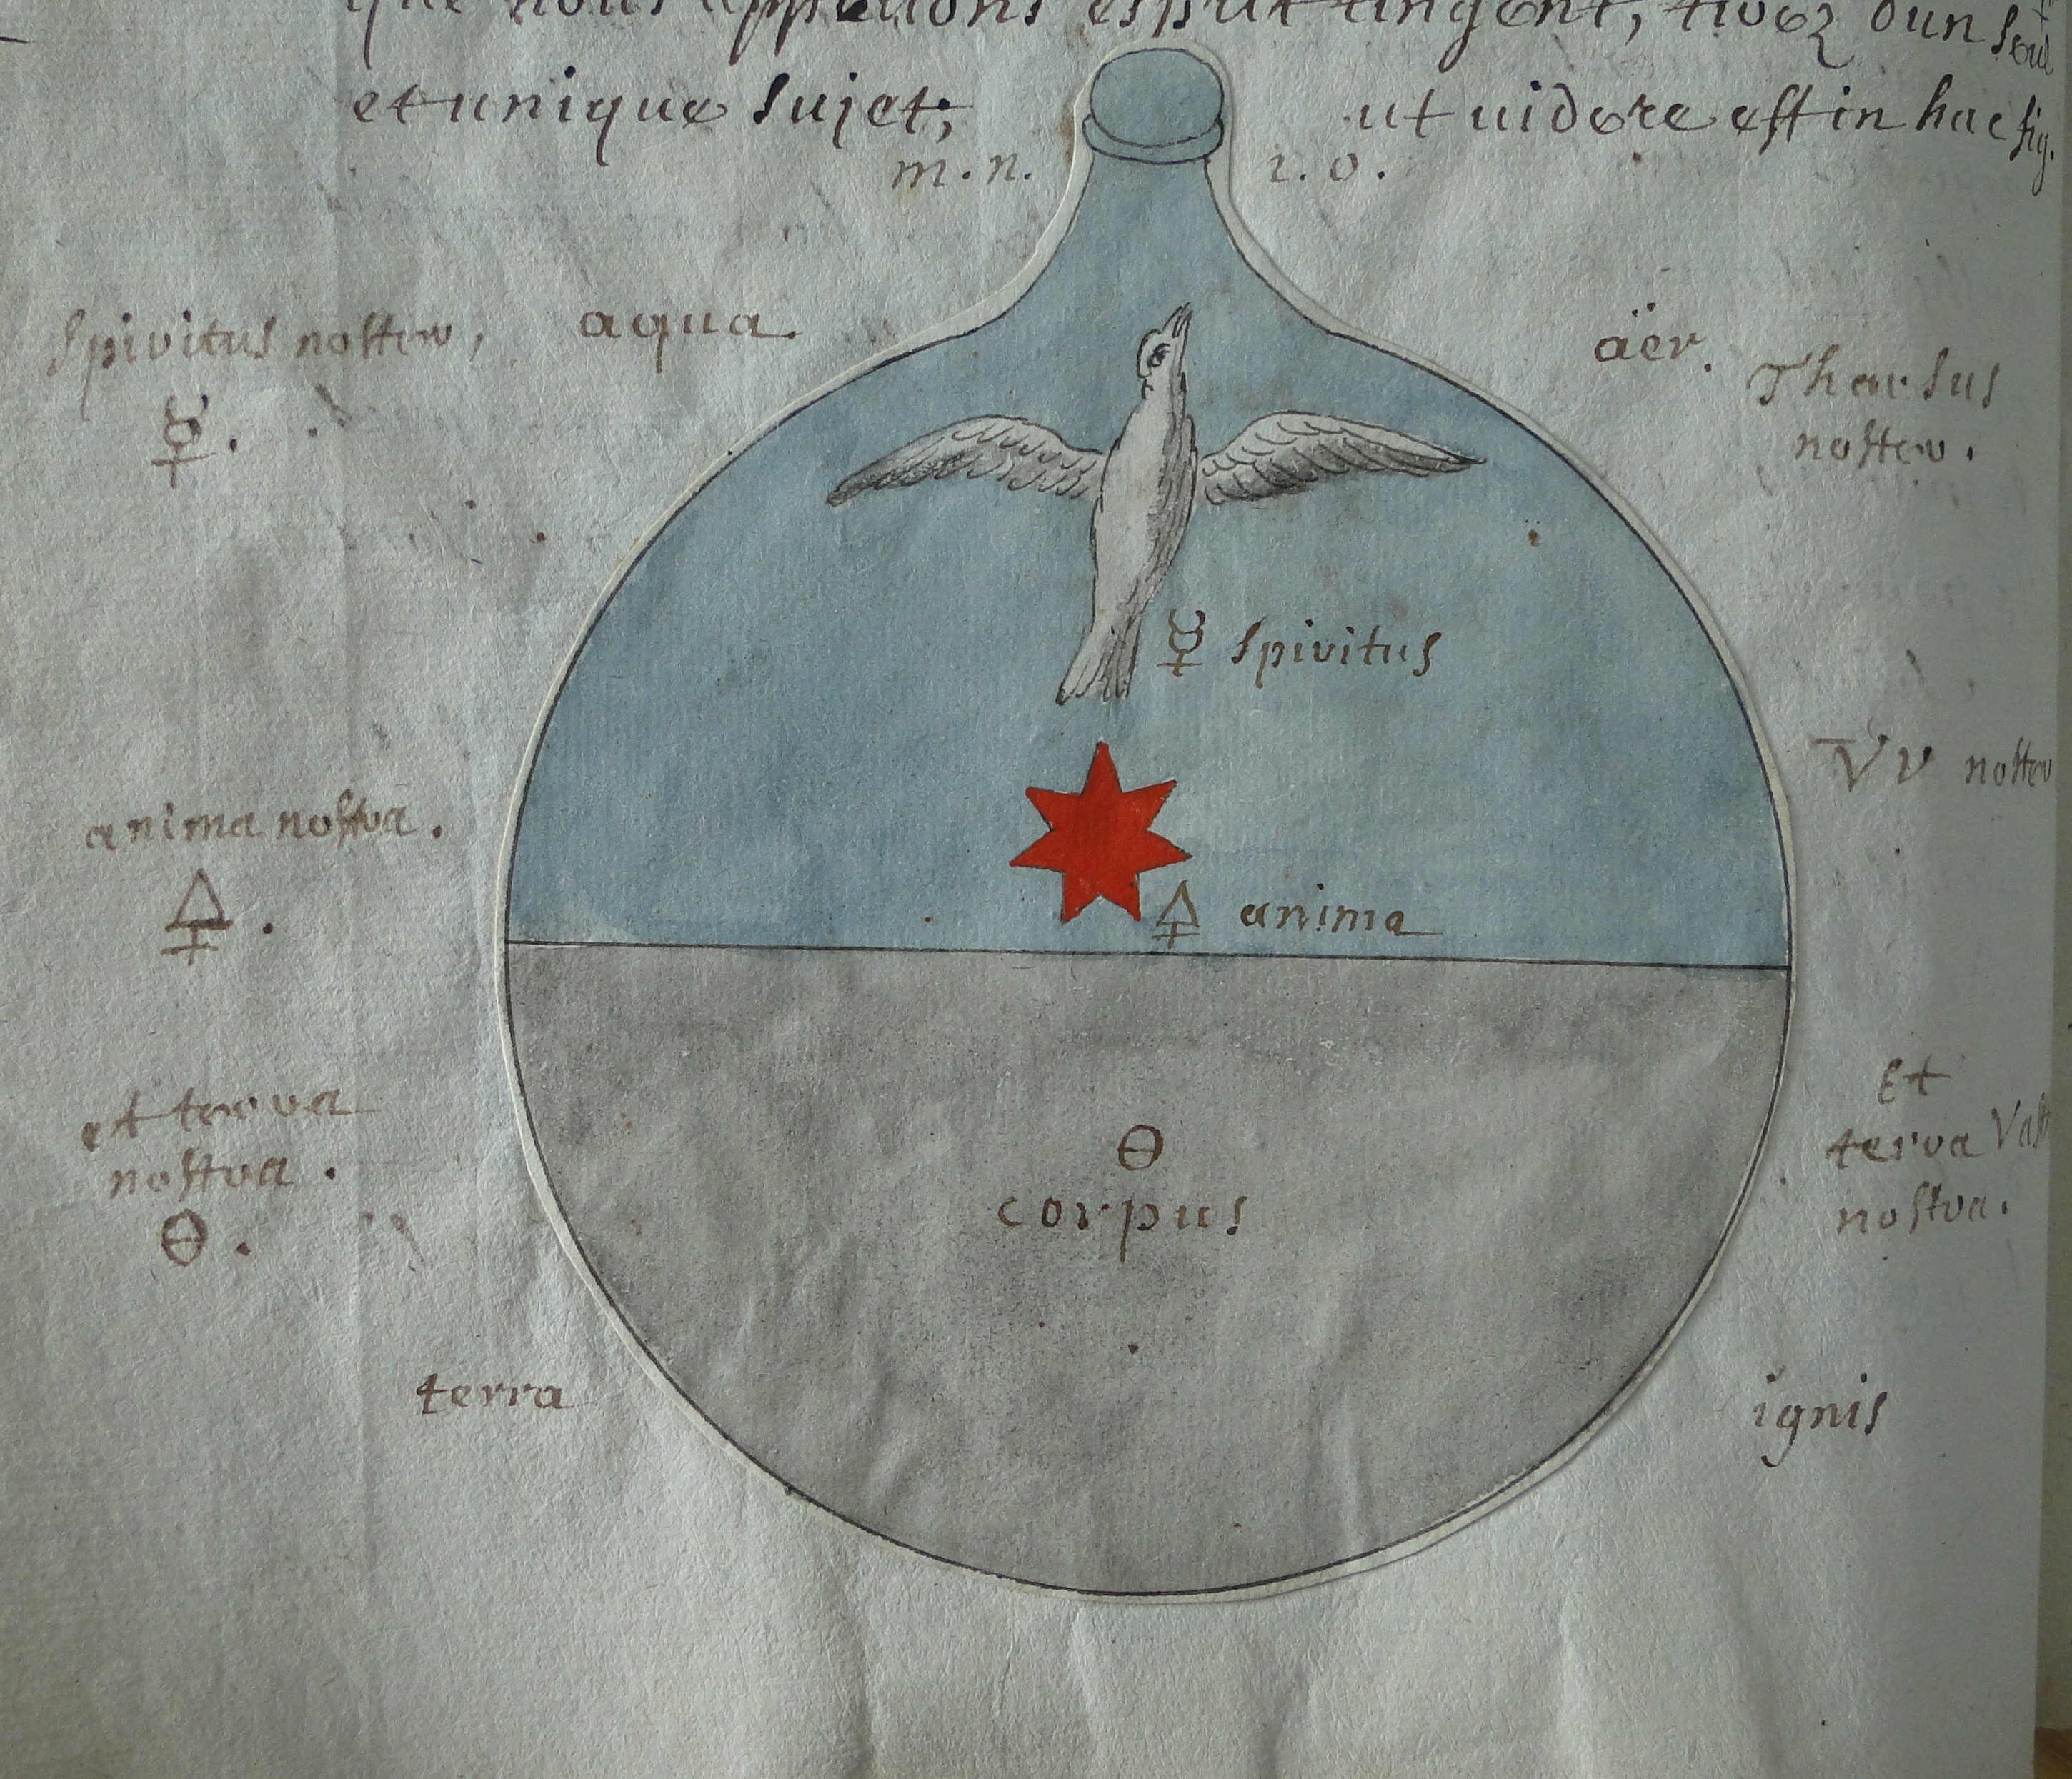 que nous appellons esprit tingent, tirez d'un seul
et unique sujet; ut uidere est in hac fig.
m. n. 2. o.
Spiritus noster, aqua. äer. Tharsus
noster.
☿.
☿ Spiritus
VV noster
anima nostra.
🜍.
🜍 anima
et terra
nostra.
Et
terra
nostra.
🜔.
🜔
corpus
terra ignis